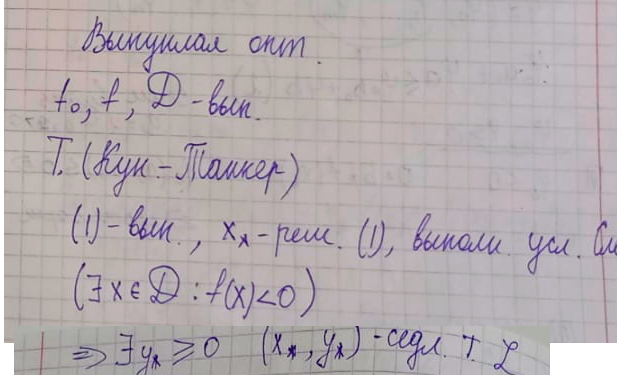 Выпуклая опт.
f₀, f, D - вып.
Т. (Кун - Таккер)
(1) - вып., x⁎ - реш. (1), выполн. усл. Сл
(∃ x ∈ D : f(x) < 0)
⇒ ∃ y⁎ ≥ 0 (x⁎, y⁎) - седл. т. L